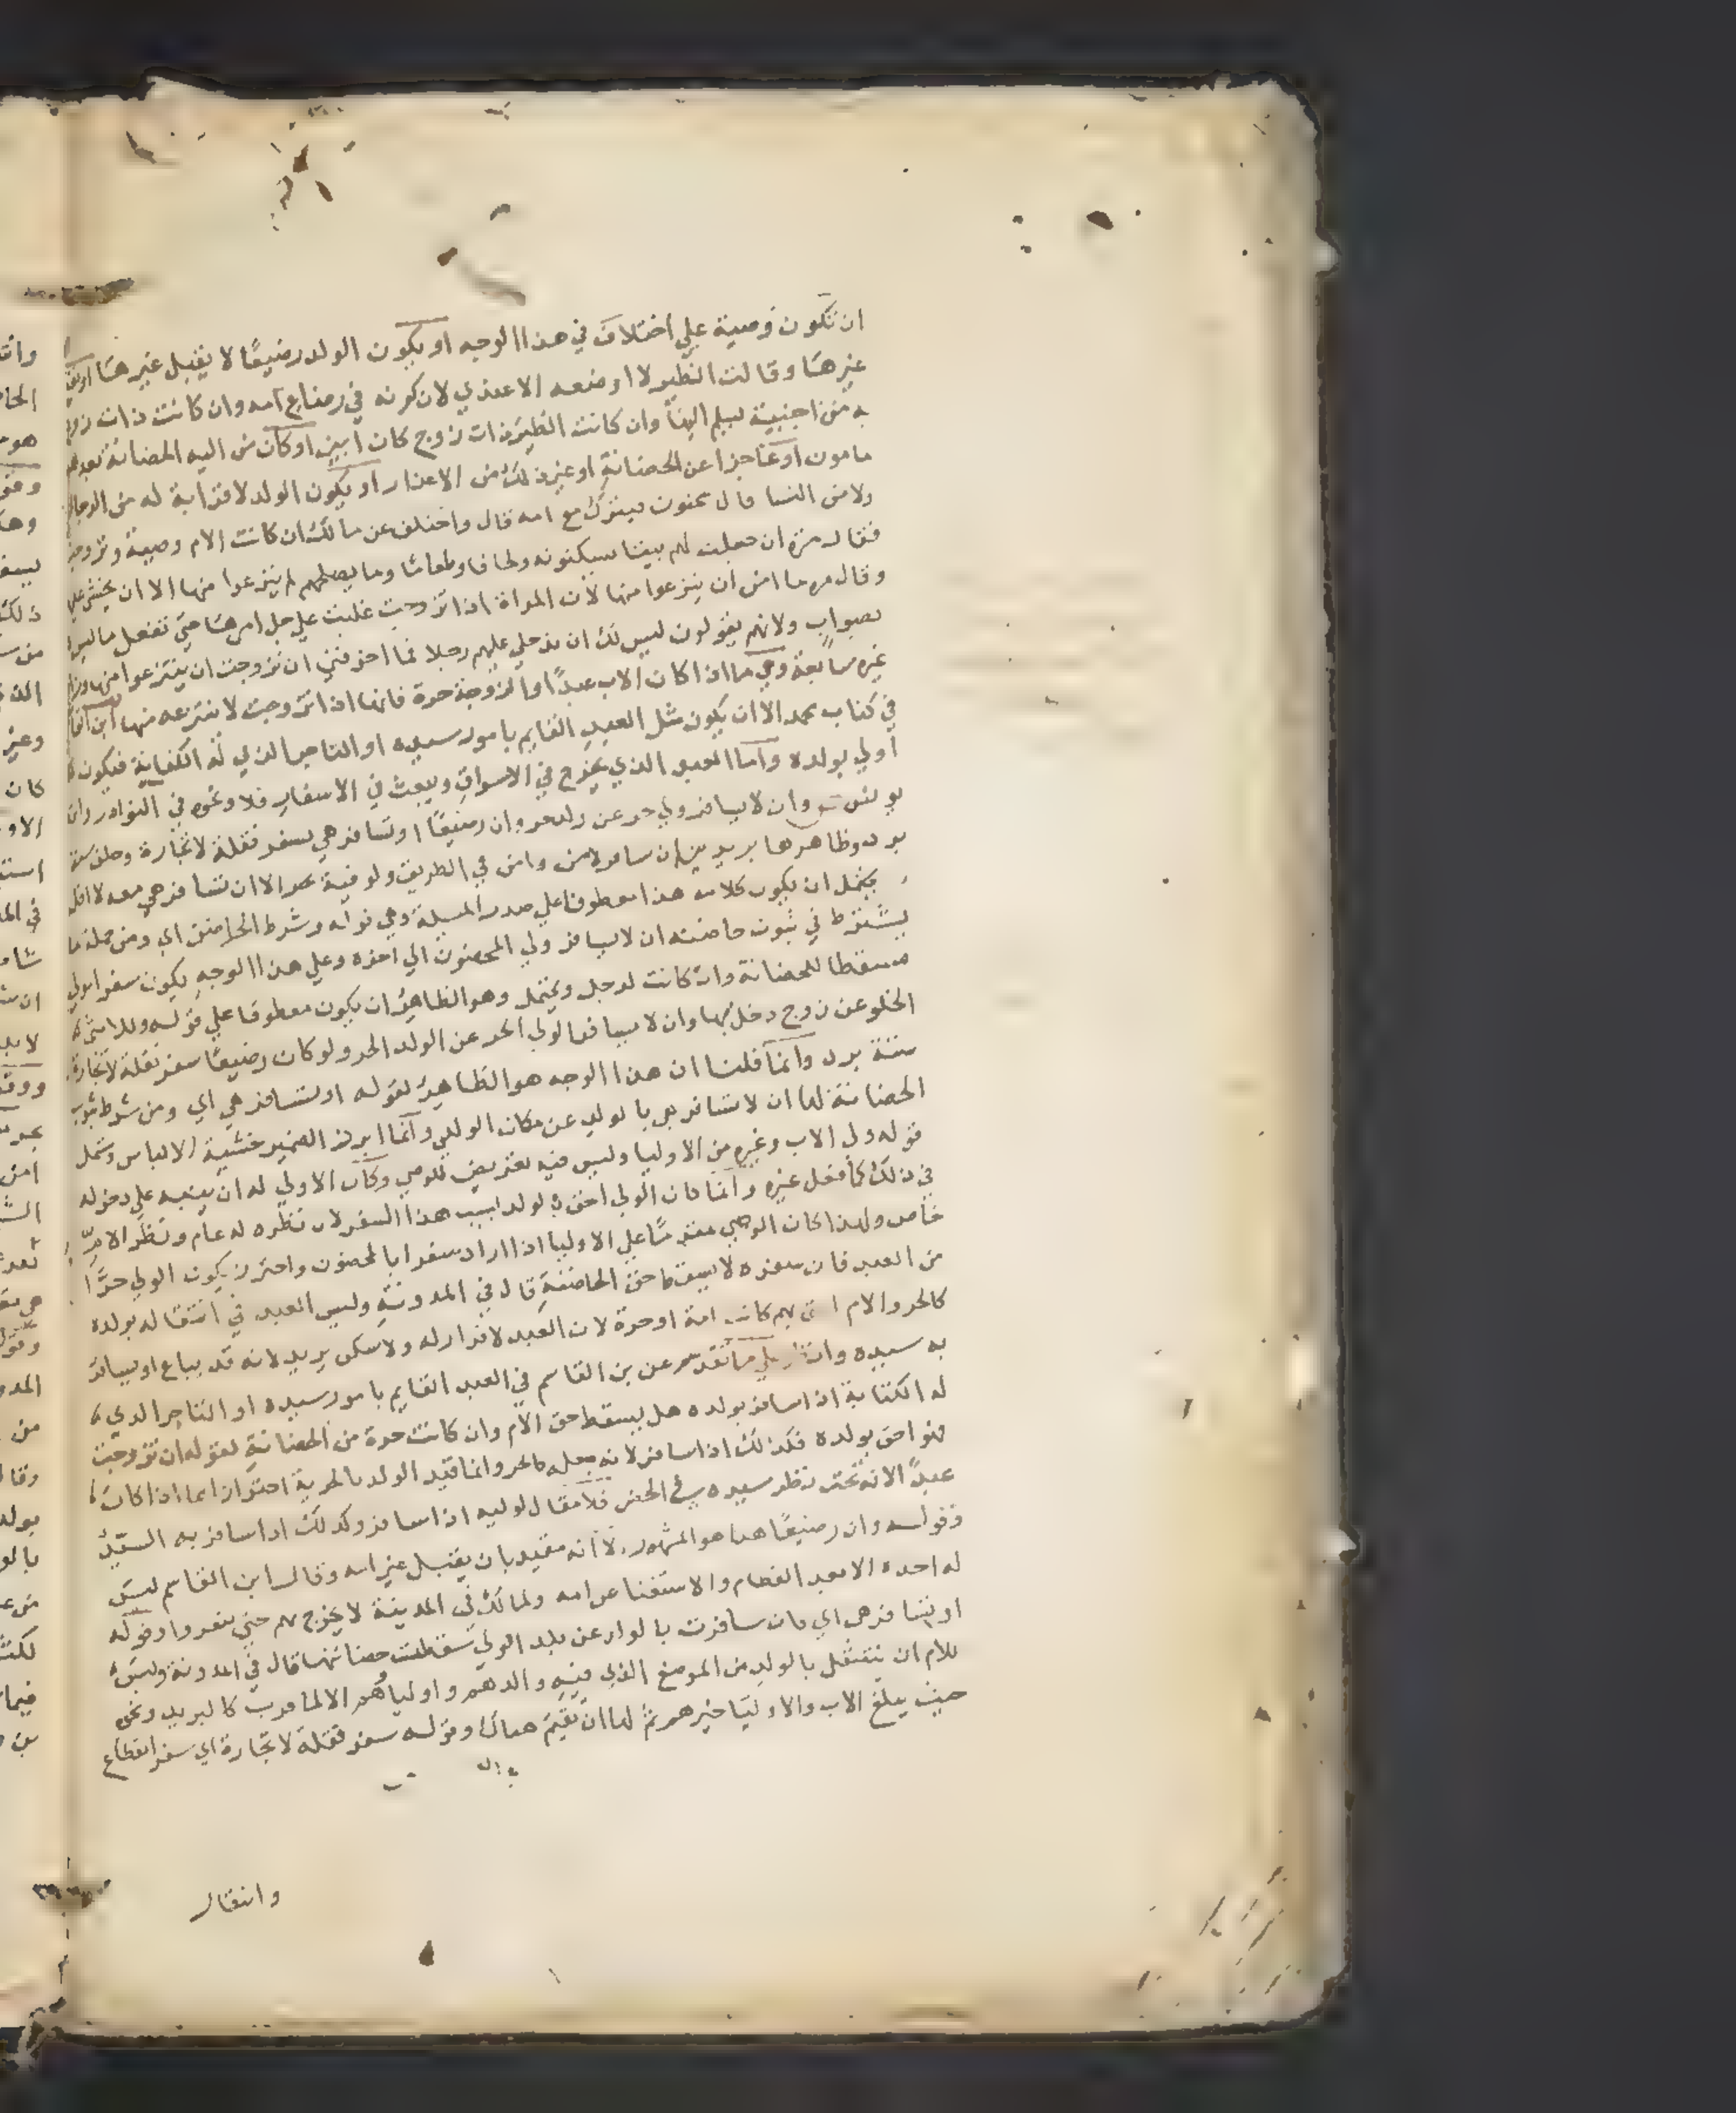 ان تكون وصية علي اختلاف في هذا الوجه او يكون الولد رضيعًا لا يقبل غيرها او يقبل
غيرها وقالت الظير لا اوضعه الا عندي لان كونه في رضاع امه وان كانت ذات زوج
من اجنبية يسلم اليها وان كانت الظير ذات زوج كان ابين او كان من اليه الحضانة بعدها غير
مامون او عاجزا عن الحضانة او غير ذلك من الاعذار او يكون الولد لا قرابة له من الرجال
ولا من النسا قال سحنون فيترك مع امه قال واختلف عن مالك ان كانت الام وصية وتزوجت
فقال مرة ان جعلت لهم بيتا يسكنونه ولحافا وطعاما وما يصلحهم لم ينزعوا منها الا ان يخشى عليهم
وقال مره ما امن ان ينزعوا منها لان المراة اذا تزوجت غلبت علي جل امرها حتي تفعل ما ليس
بصواب ولانهم يقولون ليس لك ان تدخلي عليهم رجلا فما اخوفني ان تزوجت ان ينتزعوا منها وزاد
غيره سابعة وهي ما اذا كان الاب عبدًا والزوجة حرة فانها اذا تزوجت لا ينتزعه منها ابن القاسم
في كتاب محمد الا ان يكون مثل العبد القايم بامور سيده او التاجر الذي له الكفاية فيكون
اولي بولده واما العبد الذي يخرج في الاسواق ويبعث في الاسفار فلا ونحوه في النوادر وابن
يونس وان لا يسافر ولي حر عن ولد حر وان رضيعًا او تسافر هي سفر نقلة لا تجارة وحلف ستة
برد وظاهرها بريدين ان سافر لامن وامن في الطريق ولو فيه بحر الا ان تسافر هي معه لا اقل
يحتمل ان يكون كلامه هذا معطوفا علي صدر المسيلة وهي قوله وشرط الحاضن اي ومن جملة ما
يشترط في ثبوت حاضنته ان لا يسافر ولي المحضون الي اخره وعلي هذا الوجه يكون سفر الولي
مسقطا للحضانة وان كانت لرجل ويحتمل وهو الظاهر ان يكون معطوفا علي قوله وللانثي
الخلو عن زوج دخل بها وان لا يسافر الولي الحر عن الولد الحر ولو كان رضيعًا سفر نقلة لا تجارة
ستة برد وانما قلنا ان هذا الوجه هو الظاهر لقوله او تسافر هي اي ومن شرط ثبوت
الحضانة لها ان لا تسافر هي بالولد عن مكان الولي وانما ابرز الضمير خشية الالباس وشمل
قوله ولي الاب وغيره من الاوليا وليس فيه تعريض للوصي وكان الاولي له ان ينبه علي دخوله
في ذلك كما فعل غيره وانما كان الولي احق بالولد بسبب هذا السفر لان نظره له عام ونظر الام
خاص ولهذا كان الوصي مقدمًا علي الاوليا اذا اراد سفرا بالمحضون واحترز بكون الولي حرًّا
من العبد فان سفره لا يسقط حق الحاضنة قال في المدونة وليس العبد في انتقاله بولده
كالحر والام احق بهم كانت امة او حرة لان العبد لا قرار له ولا سكن يريد لانه قد يباع او يسافر
به سيده وانظر علي ما تقدم عن بن القاسم في العبد القايم بامور سيده او التاجر الذي
له الكفاية اذا سافر بولده هل يسقط حق الام وان كانت حرة من الحضانة لقوله ان تزوجت
فهو احق بولده فكذلك اذا سافر لانه جعله كالحر وانما قيد الولد بالحرية احترازا مما اذا كان
عبدًا لانه تحت نظر سيده في الحضر فلا مقال لوليه اذا سافر وكذلك اذا سافر به السيّد
وقوله وان رضيعًا هذا هو المشهور الا انه مقيد بان يقبل غير امه وقال ابن القاسم ليس
له اخذه الا بعد الفطام والاستغنا عن امه ولمالك في المدينة لا يخرج بهم حتي يثغروا وقوله
او تسافر هي اي فان سافرت بالولد عن بلد الولي سقطت حضانتها قال في المدونة وليس
للام ان تنتقل بالولد من الموضع الذي فيه والدهم واولياهم الا لما قرب كالبريد ونحوه
حيث يبلغ الاب والاوليا خبرهم ثم لها ان تقيم هناك وقوله سفر نقلة لا تجارة اي سفر انقطاع
وانتقال